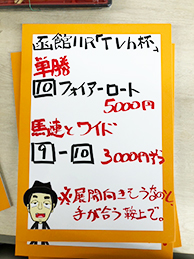 函館11R「TVh杯」
単勝
10 フォイアーロート
5000円
馬連とワイド
9-10 3000円ずつ
※展開向きそうなのと、
手が合う鞍上で。